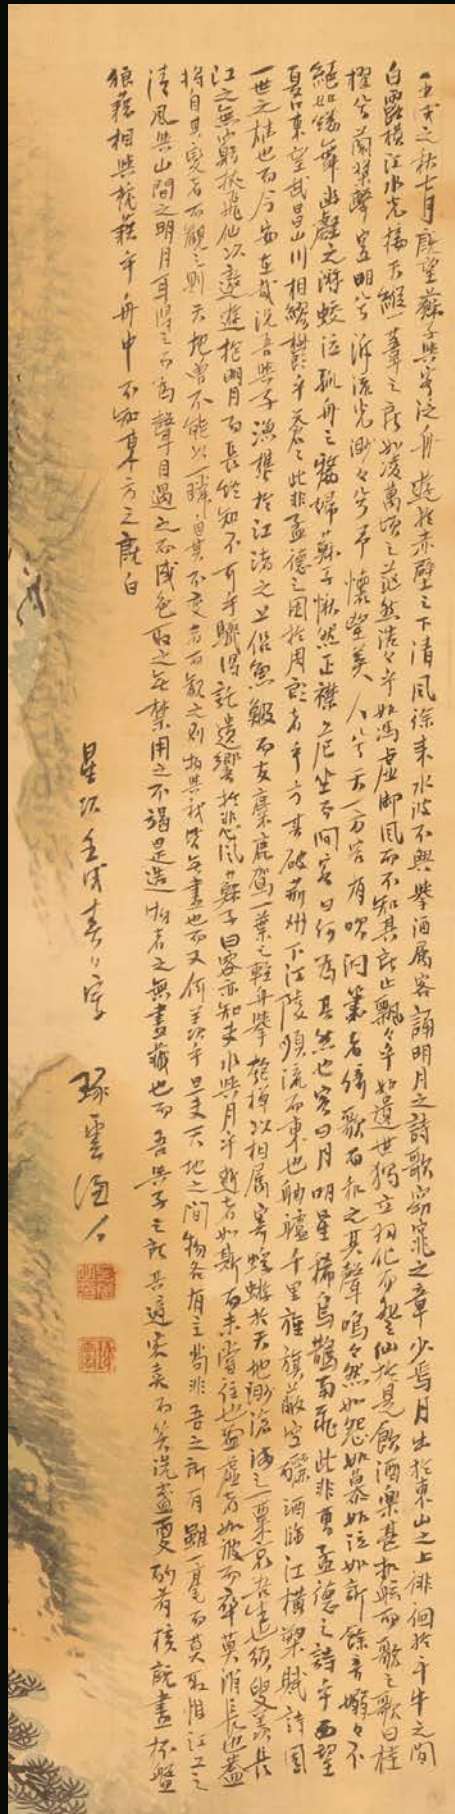 壬戌之秋七月既望蘇子與客泛舟遊於赤壁之下清風徐來水波不興舉酒属客誦明月之詩歌窈窕之章少焉月出於東山之上徘徊於斗牛之間
白露橫江水光接天縱一葦之所如凌萬頃之茫然浩々乎如馮虛御風而不知其所止飄々乎如遺世獨立羽化而登仙於是飲酒樂甚扣舷而歌之歌曰桂
櫂兮蘭槳擊空明兮泝流光渺々兮予懷望美人兮天一方客有吹洞簫者倚歌而和之其聲嗚々然如怨如慕如泣如訴餘音嫋々不
絕如縷舞幽壑之潛蛟泣孤舟之嫠婦蘇子愀然正襟危坐而問客曰何為其然也客曰月明星稀烏鵲南飛此非曹孟德之詩乎西望
夏口東望武昌山川相繆鬱乎蒼々此非孟德之困於周郎者乎方其破荊州下江陵順流而東也舳艫千里旌旗蔽空釃酒臨江橫槊賦詩固
一世之雄也而今安在哉況吾與子漁樵於江渚之上侶魚鰕而友麋鹿駕一葉之輕舟舉匏樽以相属寄蜉蝣於天地渺滄海之一粟哀吾生也須臾羨長
江之無窮挾飛仙以遨遊抱明月而長終知不可乎驟得託遺響於悲風蘇子曰客亦知夫水與月乎逝者如斯而未嘗往也盈虛者如彼而卒莫消長也蓋
將自其變者而觀之則天地曾不能以一瞬自其不變者而觀之則物與我皆無盡也而又何羨乎且夫天地之間物各有主苟非吾之所有雖一毫而莫取惟江上之
清風與山間之明月耳得之而為聲目遇之而成色取之無禁用之不竭是造物者之無盡藏也而吾與子之所共適客喜而笑洗盞更酌肴核既盡杯盤
狼藉相與枕藉乎舟中不知東方之既白
星次壬戌春日寫 琢雲漁人